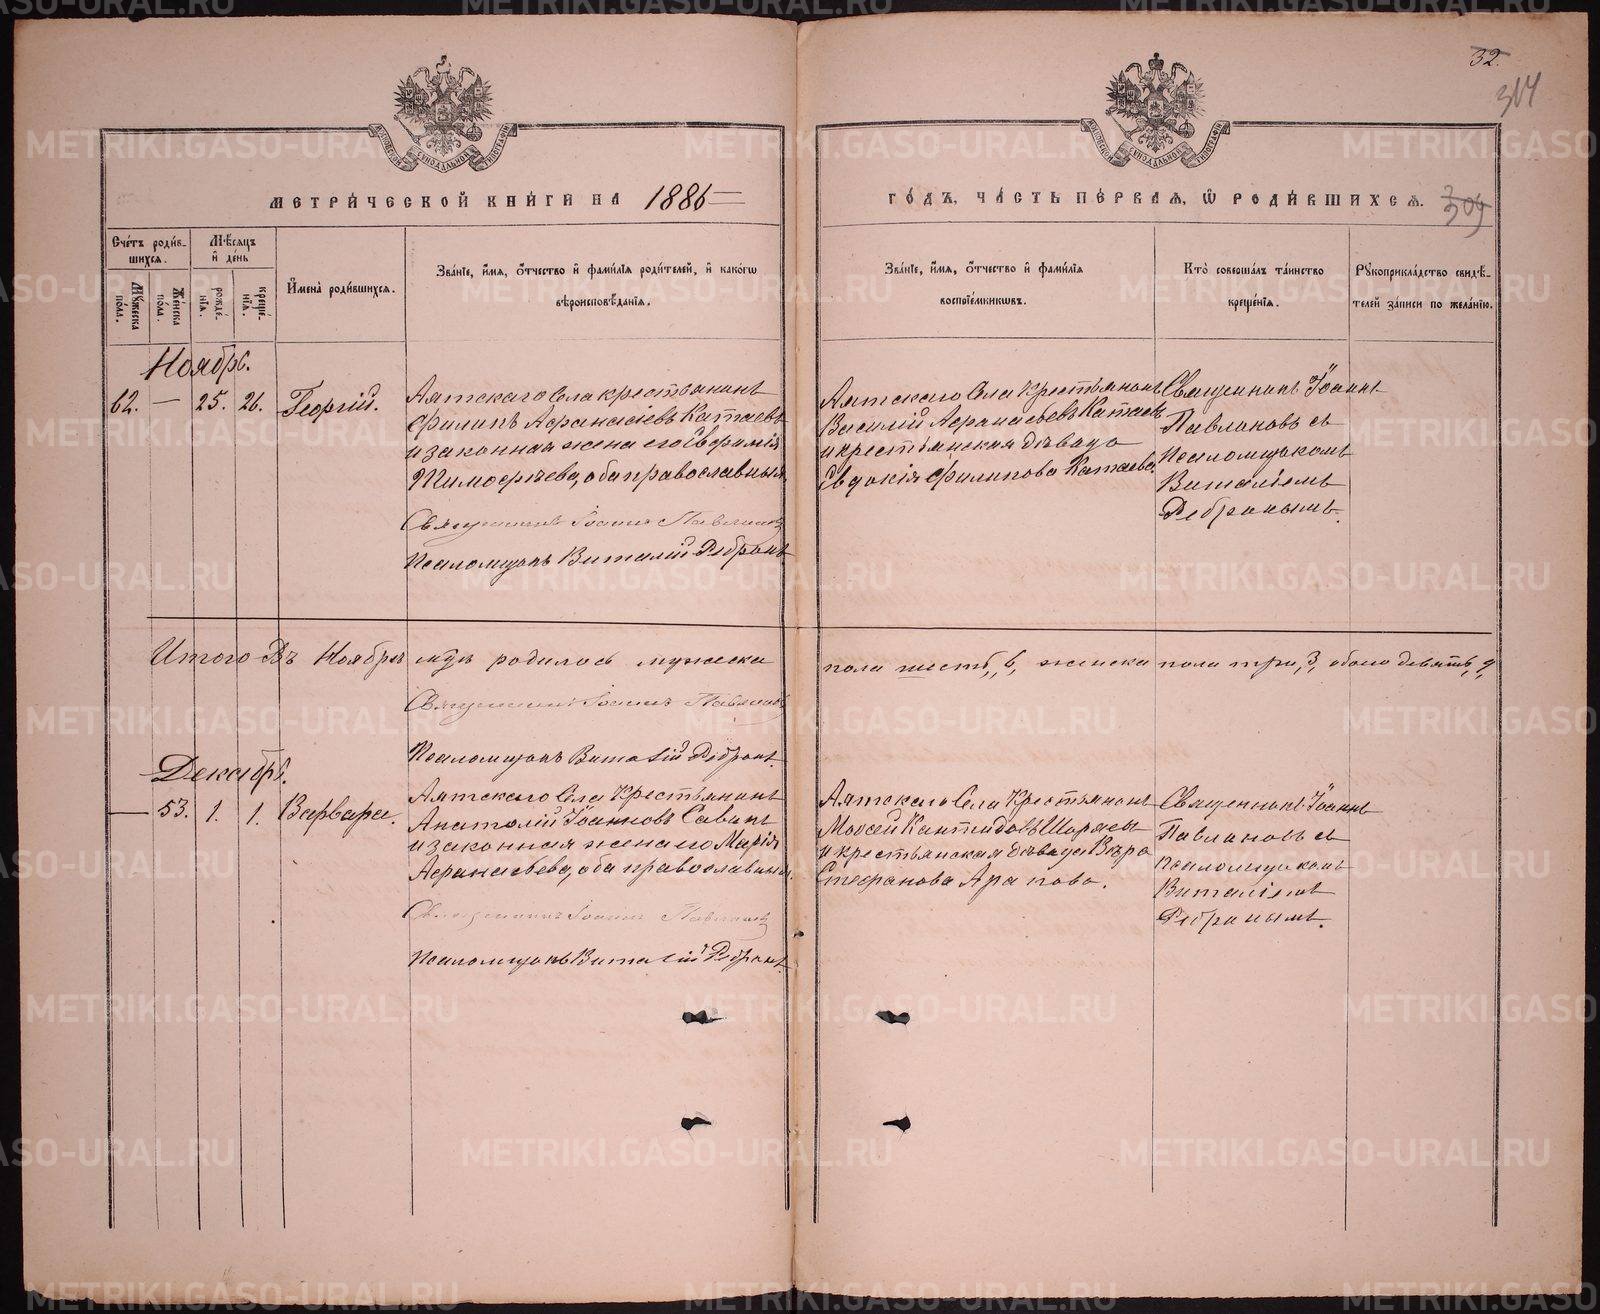 32.
314
МЕТРИ́ЧЕСКОЙ КНИ́ГИ НА 1886
ГО́ДЪ, ЧА́СТЬ ПЕ́РВАЯ, Ѿ РОДИ́ВШИХСЯ. 309
Сче́тъ роди́в-
шихся.
Мѣ́сяцъ
и҆ де́нь
И҆мена̀ роди́вшихся.
Зва́нїе, и҆́мя, ѻ҆́тчество и҆ фами́лїя роди́телей, и҆ како́гѡ
вѣроисповѣ́данїя.
Зва́нїе, и҆́мя, ѻ҆́тчество и҆ фами́лїя
воспрїе́мникѡвъ.
Кто̀ соверша́лъ та́инство
креще́нїя.
Рꙋкоприкла́дство свидѣ́-
телей за́писи по жела́нїю.
Мꙋ́жеска
по́ла.
Же́нска
по́ла.
рожде́-
нїя.
креще́-
нїя.
Ноябрь.
62. — 25. 26. Георгій.
Аятскаго села крестьянинъ
Филипъ Афанасіевъ Катаевъ
и законная жена его Евфимія
Тимофѣева, оба православныя.
Священникъ Іоаннъ Павлиновъ
Псаломщикъ Виталій Ребринъ
Аятскаго села крестьянинъ
Василій Афанасьевъ Катаевъ
и крестьянская дѣвица
Евдокія Филипова Катаева.
Священникъ Іоаннъ
Павлиновъ съ
псаломщикомъ
Виталіемъ
Ребринымъ.
Итого въ Ноябрѣ мцѣ родилось мужеска пола шесть, 6, женска пола три, 3, обоего девять, 9,
Священникъ Іоаннъ Павлиновъ
Псаломщикъ Виталій Ребринъ.
Декабрь.
— 53. 1. 1. Варвара.
Аятскаго села крестьянинъ
Анатолій Іоанновъ Савинъ
и законная жена его Марія
Афанасьева, оба православныя.
Священникъ Іоаннъ Павлиновъ
Псаломщикъ Виталій Ребринъ.
Аятскаго села крестьянинъ
Моѵсей Кантидовъ
и крестьянская дѣвица Вѣра
Стефанова Арапова.
Священникъ Іоаннъ
Павлиновъ съ
псаломщикомъ
Виталіемъ
Ребринымъ.
METRIKI.GASO-URAL.RU